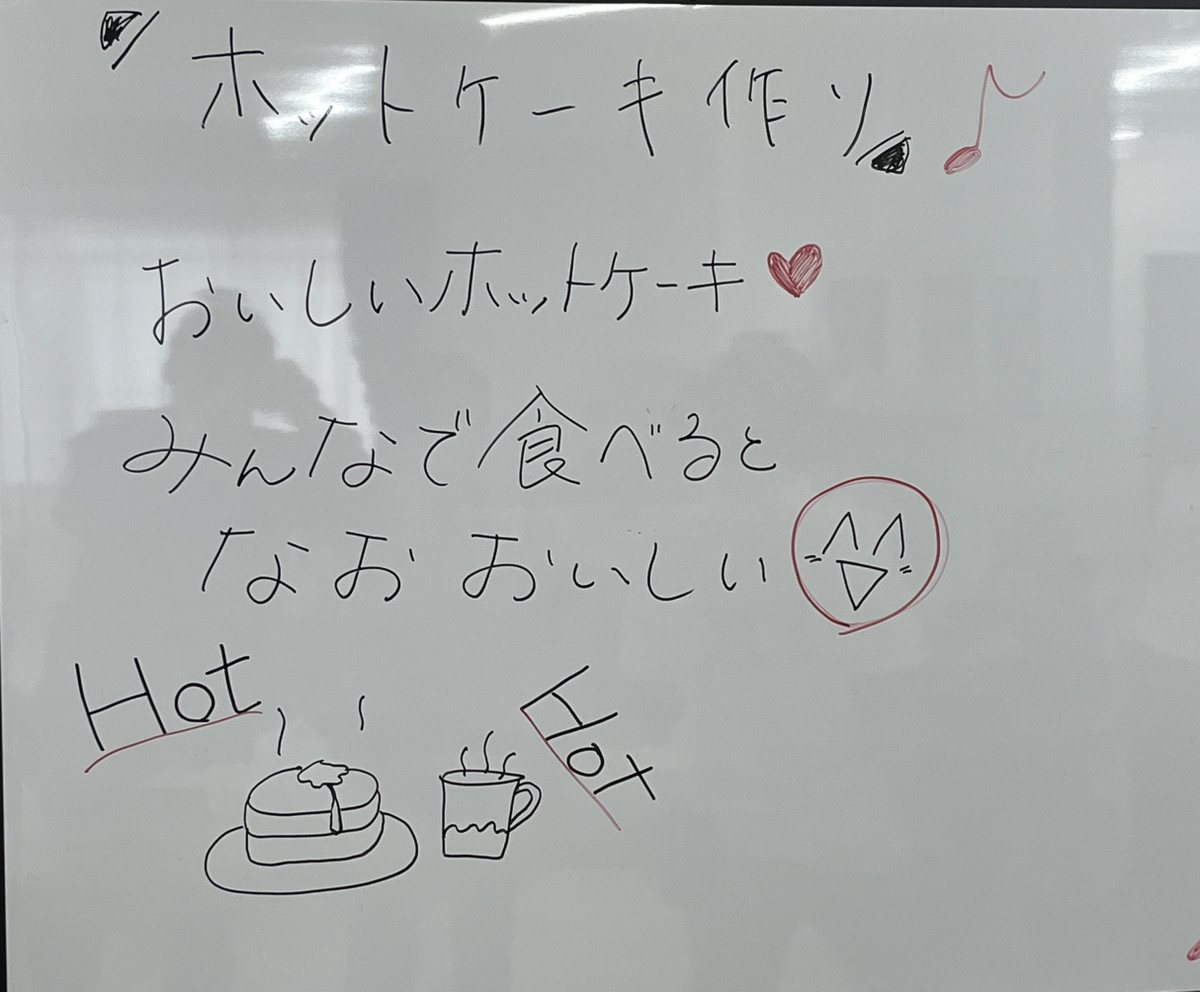 ホットケーキ作り♪
おいしいホットケーキ♥
みんなで食べると
なおおいしい
Hot
Hot